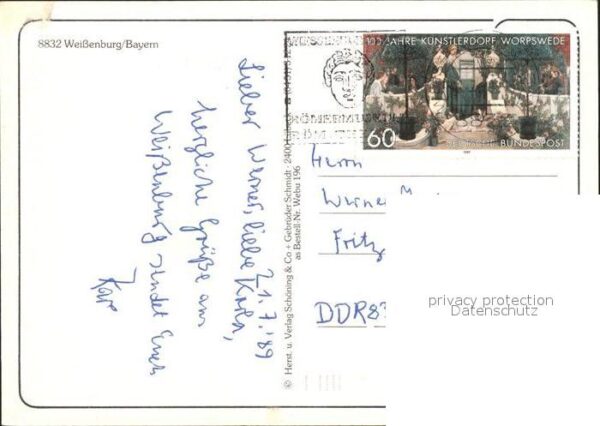 8832 Weißenburg/Bayern
21.7.'89
Lieber Werner, liebe Karla,
herzliche Grüße aus
Weißenburg sendet Euch
Herst. u. Verlag Schöning & Co + Gebrüder Schmidt · 2400
as Bestell-Nr. Webu 196
100 JAHRE KÜNSTLERDORF WORPSWEDE
60
DEUTSCHE BUNDESPOST
RÖMERMUSEUM
Herrn
Werner M
Fritz
DDR 83
privacy protection
Datenschutz